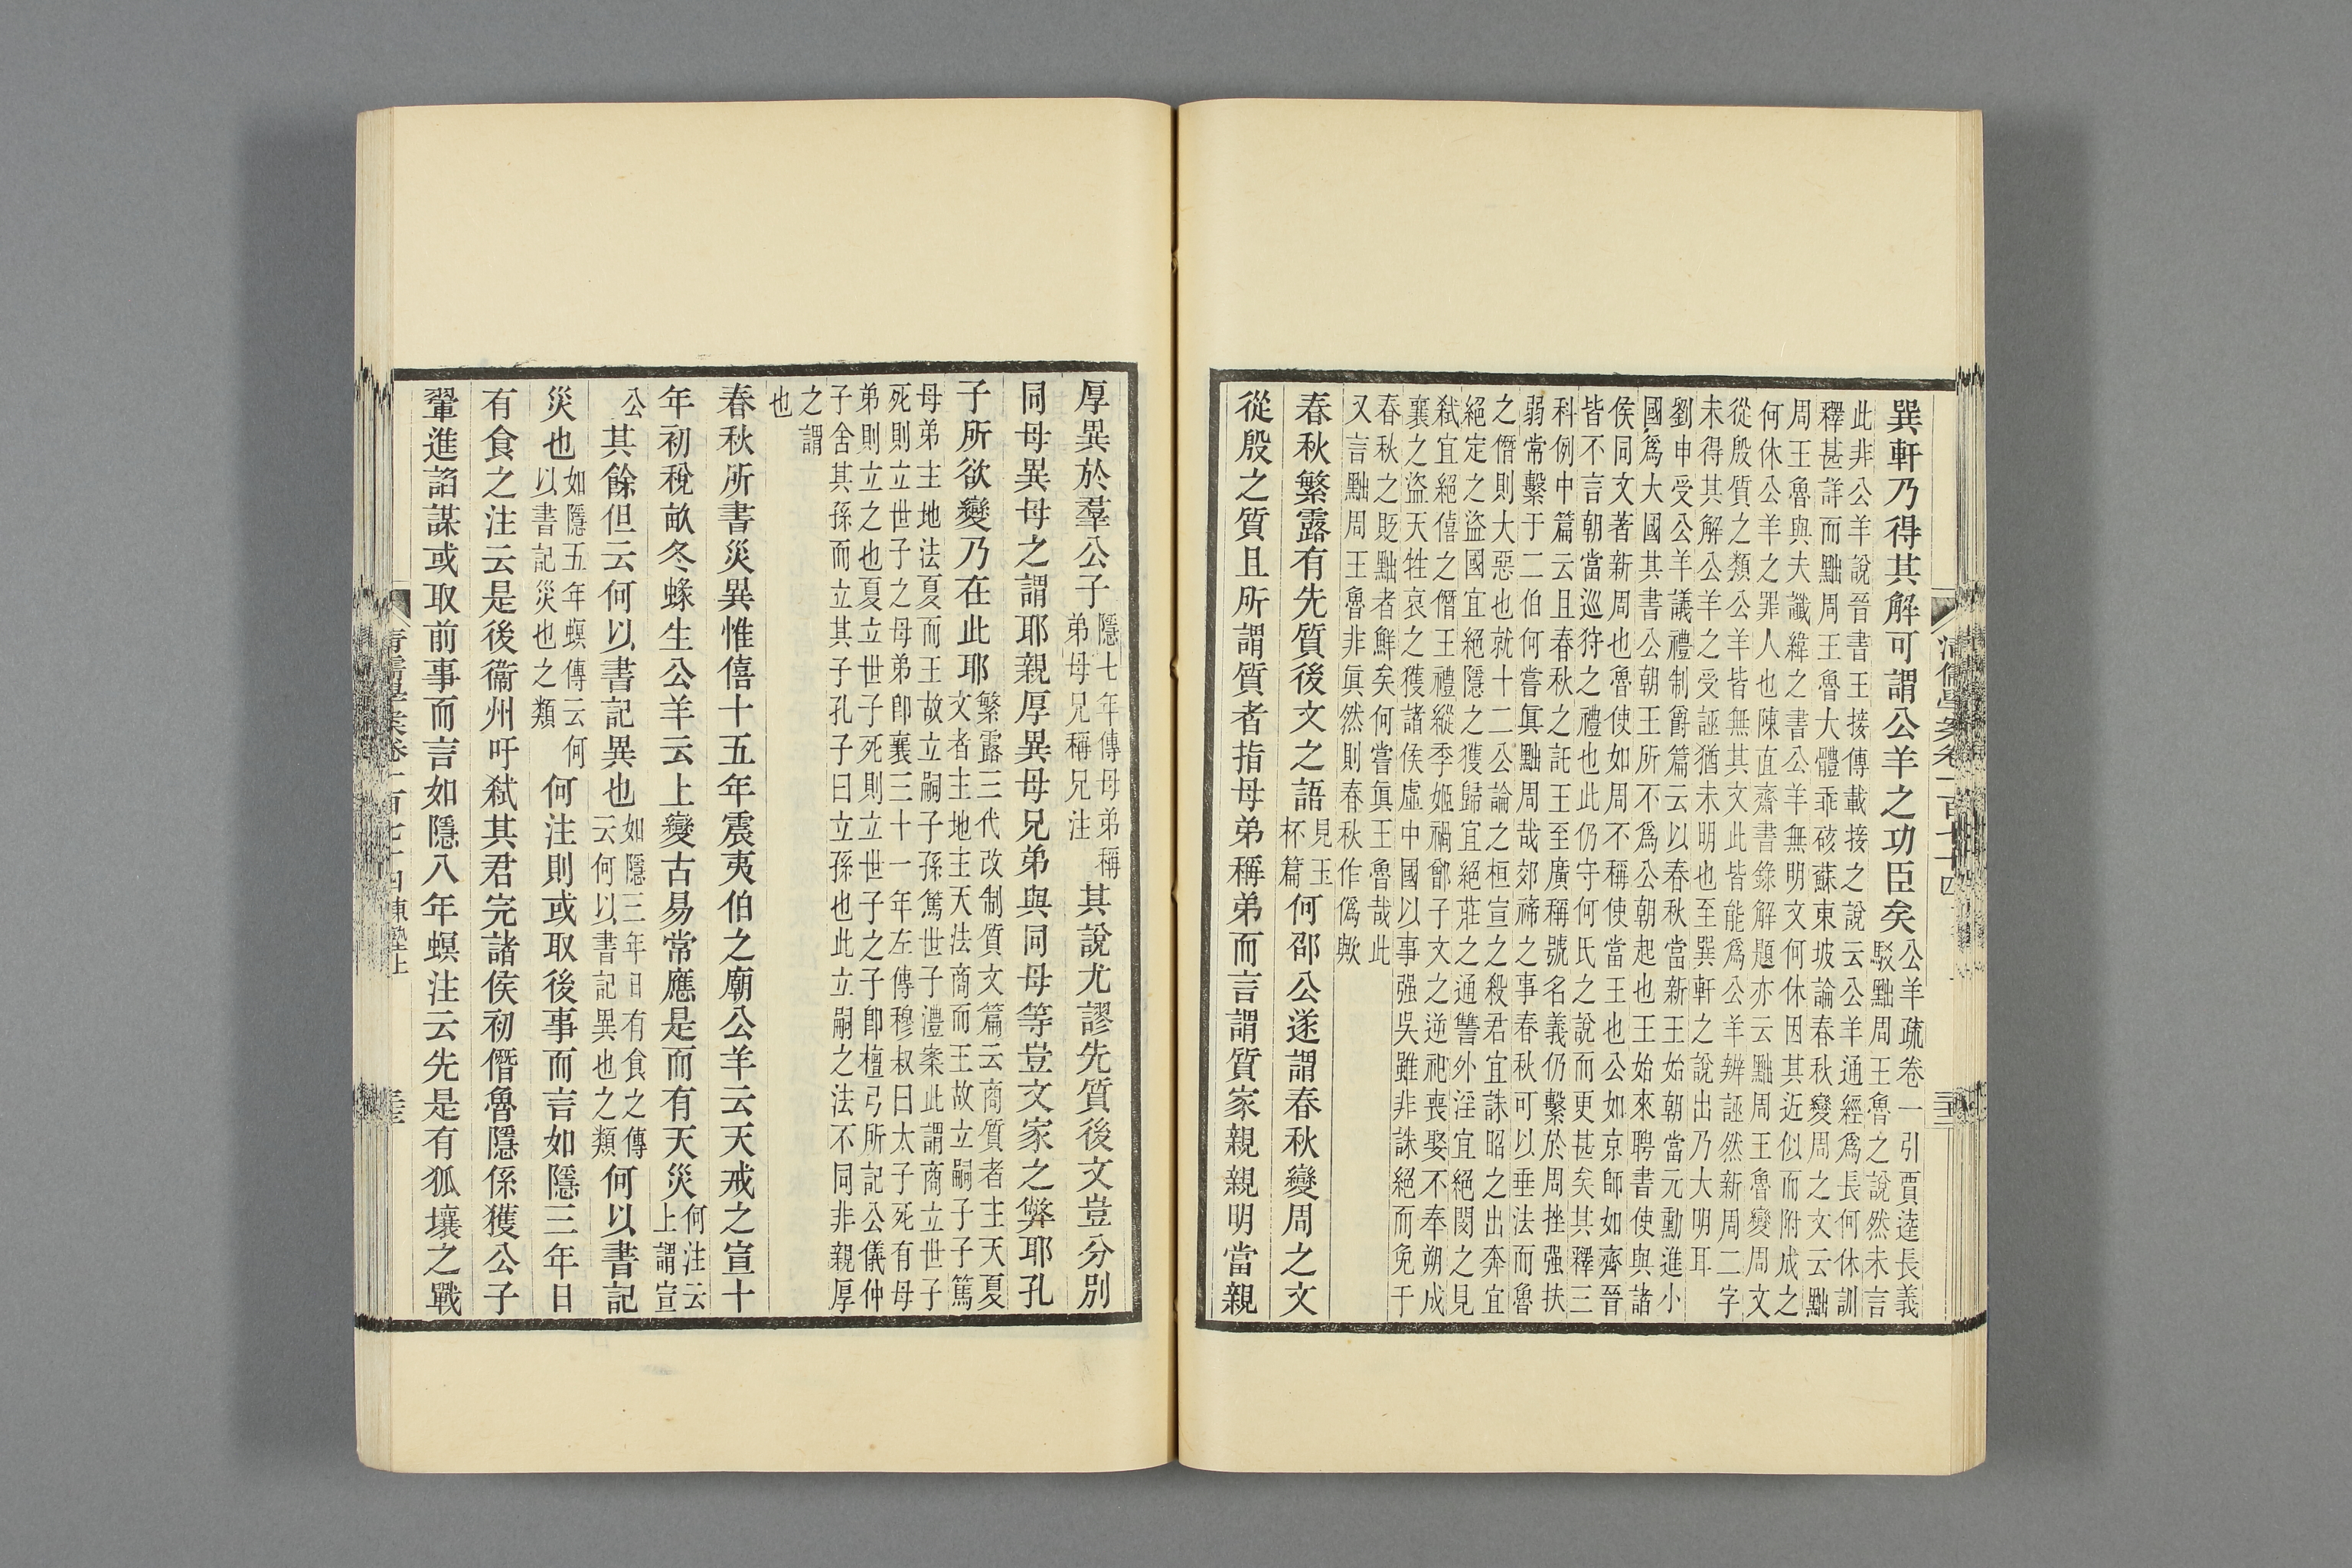 巽軒乃得其解可謂公羊之功臣矣
公羊疏卷一引賈逵長義
駁黜周王魯之說然未言
此非公羊說晉書王接傳載接之說云公羊通經爲長何休訓
釋甚詳而黜周王魯大體乖硋蘇東坡論春秋變周之文云黜
周王魯與夫讖緯之書公羊無明文何休因其近似而附成之
何休公羊之罪人也陳直齋書錄解題亦云黜周王魯變周文
從殷質之類公羊皆無其文此皆能爲公羊辨誣然新周二字
未得其解公羊之受誣猶未明也至巽軒之說出乃大明耳
劉申受公羊議禮制爵篇云以春秋當新王始朝當元勳進小
國爲大國其書公朝王所不爲公朝起也王始來聘書使與諸
侯同文著新周也魯使如周不稱使當王也公如京師如齊晉
皆不言朝當巡狩之禮也此仍守何氏之說而更甚矣其釋三
科例中篇云且春秋之託王至廣稱號名義仍繫於周挫强扶
弱常繫于二伯何嘗眞黜周哉郊禘之事春秋可以垂法而魯
之僭則大惡也就十二公論之桓宣之殺君宜誅昭之出奔宜
絕定之盜國宜絕隱之獲歸宜絕莊之通讐外淫宜絕閔之見
弒宜絕僖之僭王禮縱季姬禍鄫子文之逆祀喪娶不奉朔成
襄之盜天牲哀之獲諸侯虛中國以事强吳雖非誅絕而免于
春秋之貶黜者鮮矣何嘗眞王魯哉此
又言黜周王魯非眞然則春秋作僞歟
春秋繁露有先質後文之語
見玉
杯篇
何邵公遂謂春秋變周之文
從殷之質且所謂質者指母弟稱弟而言謂質家親親明當親
厚異於羣公子
隱七年傳母弟稱
弟母兄稱兄注
其說尤謬先質後文豈分別
同母異母之謂耶親厚異母兄弟與同母等豈文家之弊耶孔
子所欲變乃在此耶
繁露三代改制質文篇云商質者主天夏
文者主地主天法商而王故立嗣子子篤
母弟主地法夏而王故立嗣子孫篤世子澧案此謂商立世子
死則立世子之母弟卽襄三十一年左傳穆叔曰太子死有母
弟則立之也夏立世子死則立世子之子卽檀弓所記公儀仲
子舍其孫而立其子孔子曰立孫也此立嗣之法不同非親厚
之謂
也
春秋所書災異惟僖十五年震夷伯之廟公羊云天戒之宣十
年初稅畝冬蝝生公羊云上變古易常應是而有天災
何注云
上謂宣
公
其餘但云何以書記異也
如隱三年日有食之傳
云何以書記異也之類
何以書記
災也
如隱五年螟傳云何
以書記災也之類
何注則或取後事而言如隱三年日
有食之注云是後衞州吁弒其君完諸侯初僭魯隱係獲公子
翬進諂謀或取前事而言如隱八年螟注云先是有狐壤之戰